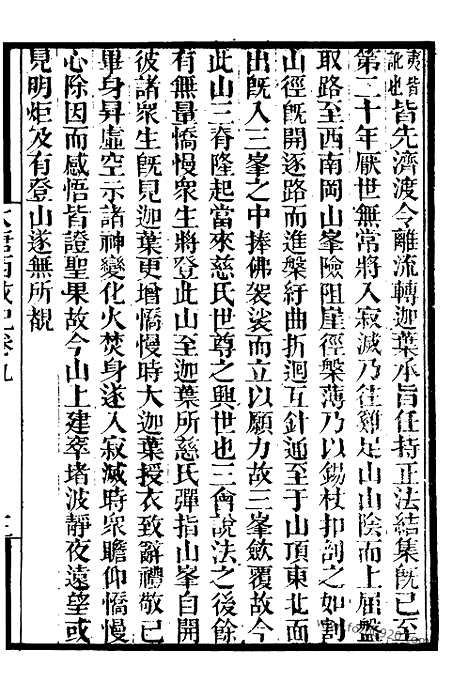 夷皆訛也皆先濟渡令離流轉迦葉承旨任持正法結集旣已至
第二十年厭世無常將入寂滅乃往雞足山山陰而上屈盤
取路至西南岡山峯險阻崖徑槃薄乃以錫杖扣剖之如割
山徑旣開逐路而進槃紆曲折迴互斜通至于山頂東北面
出旣入三峯之中捧佛袈裟而立以願力故三峯斂覆故今
此山三脊隆起當來慈氏世尊之興世也三會說法之後餘
有無量憍慢衆生將登此山至迦葉所慈氏彈指山峯自開
彼諸衆生旣見迦葉更增憍慢時大迦葉授衣致辭禮敬已
畢身昇虛空示諸神變化火焚身遂入寂滅時衆瞻仰憍慢
心除因而感悟皆證聖果故今山上建窣堵波靜夜遠望或
見明炬及有登山遂無所覩
大唐西域記卷九